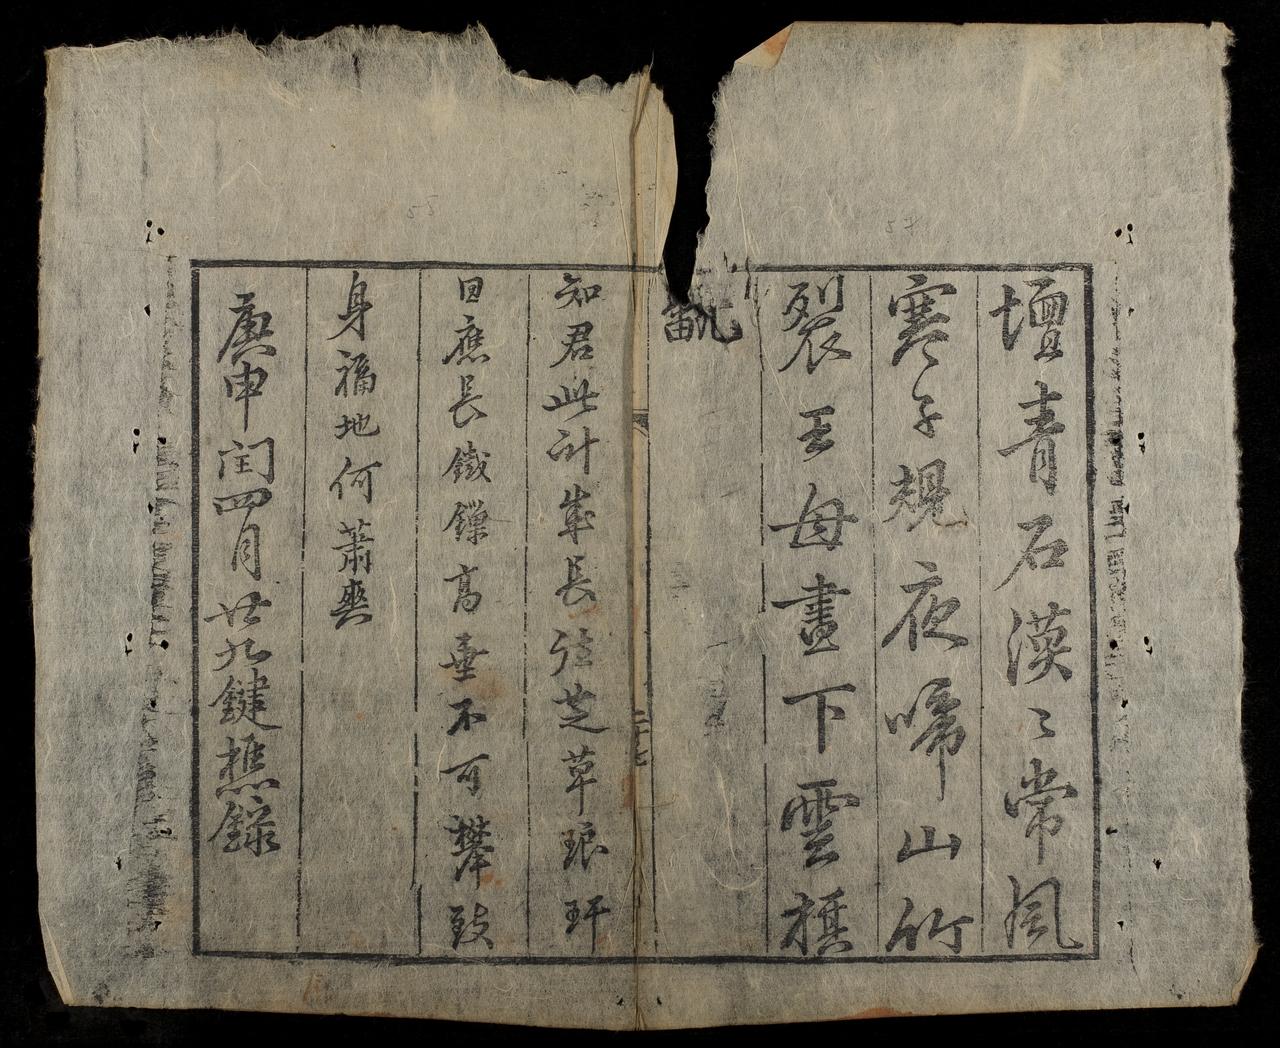 壇青石漠〻常風
寒子規夜啼山竹
裂王母晝下雲旗
飜
二十七
知君此計成長往芝草琅玕
日應長鐵鎖高垂不可攀致
身福地何蕭爽
庚申閏四月廿九鍵樵錄